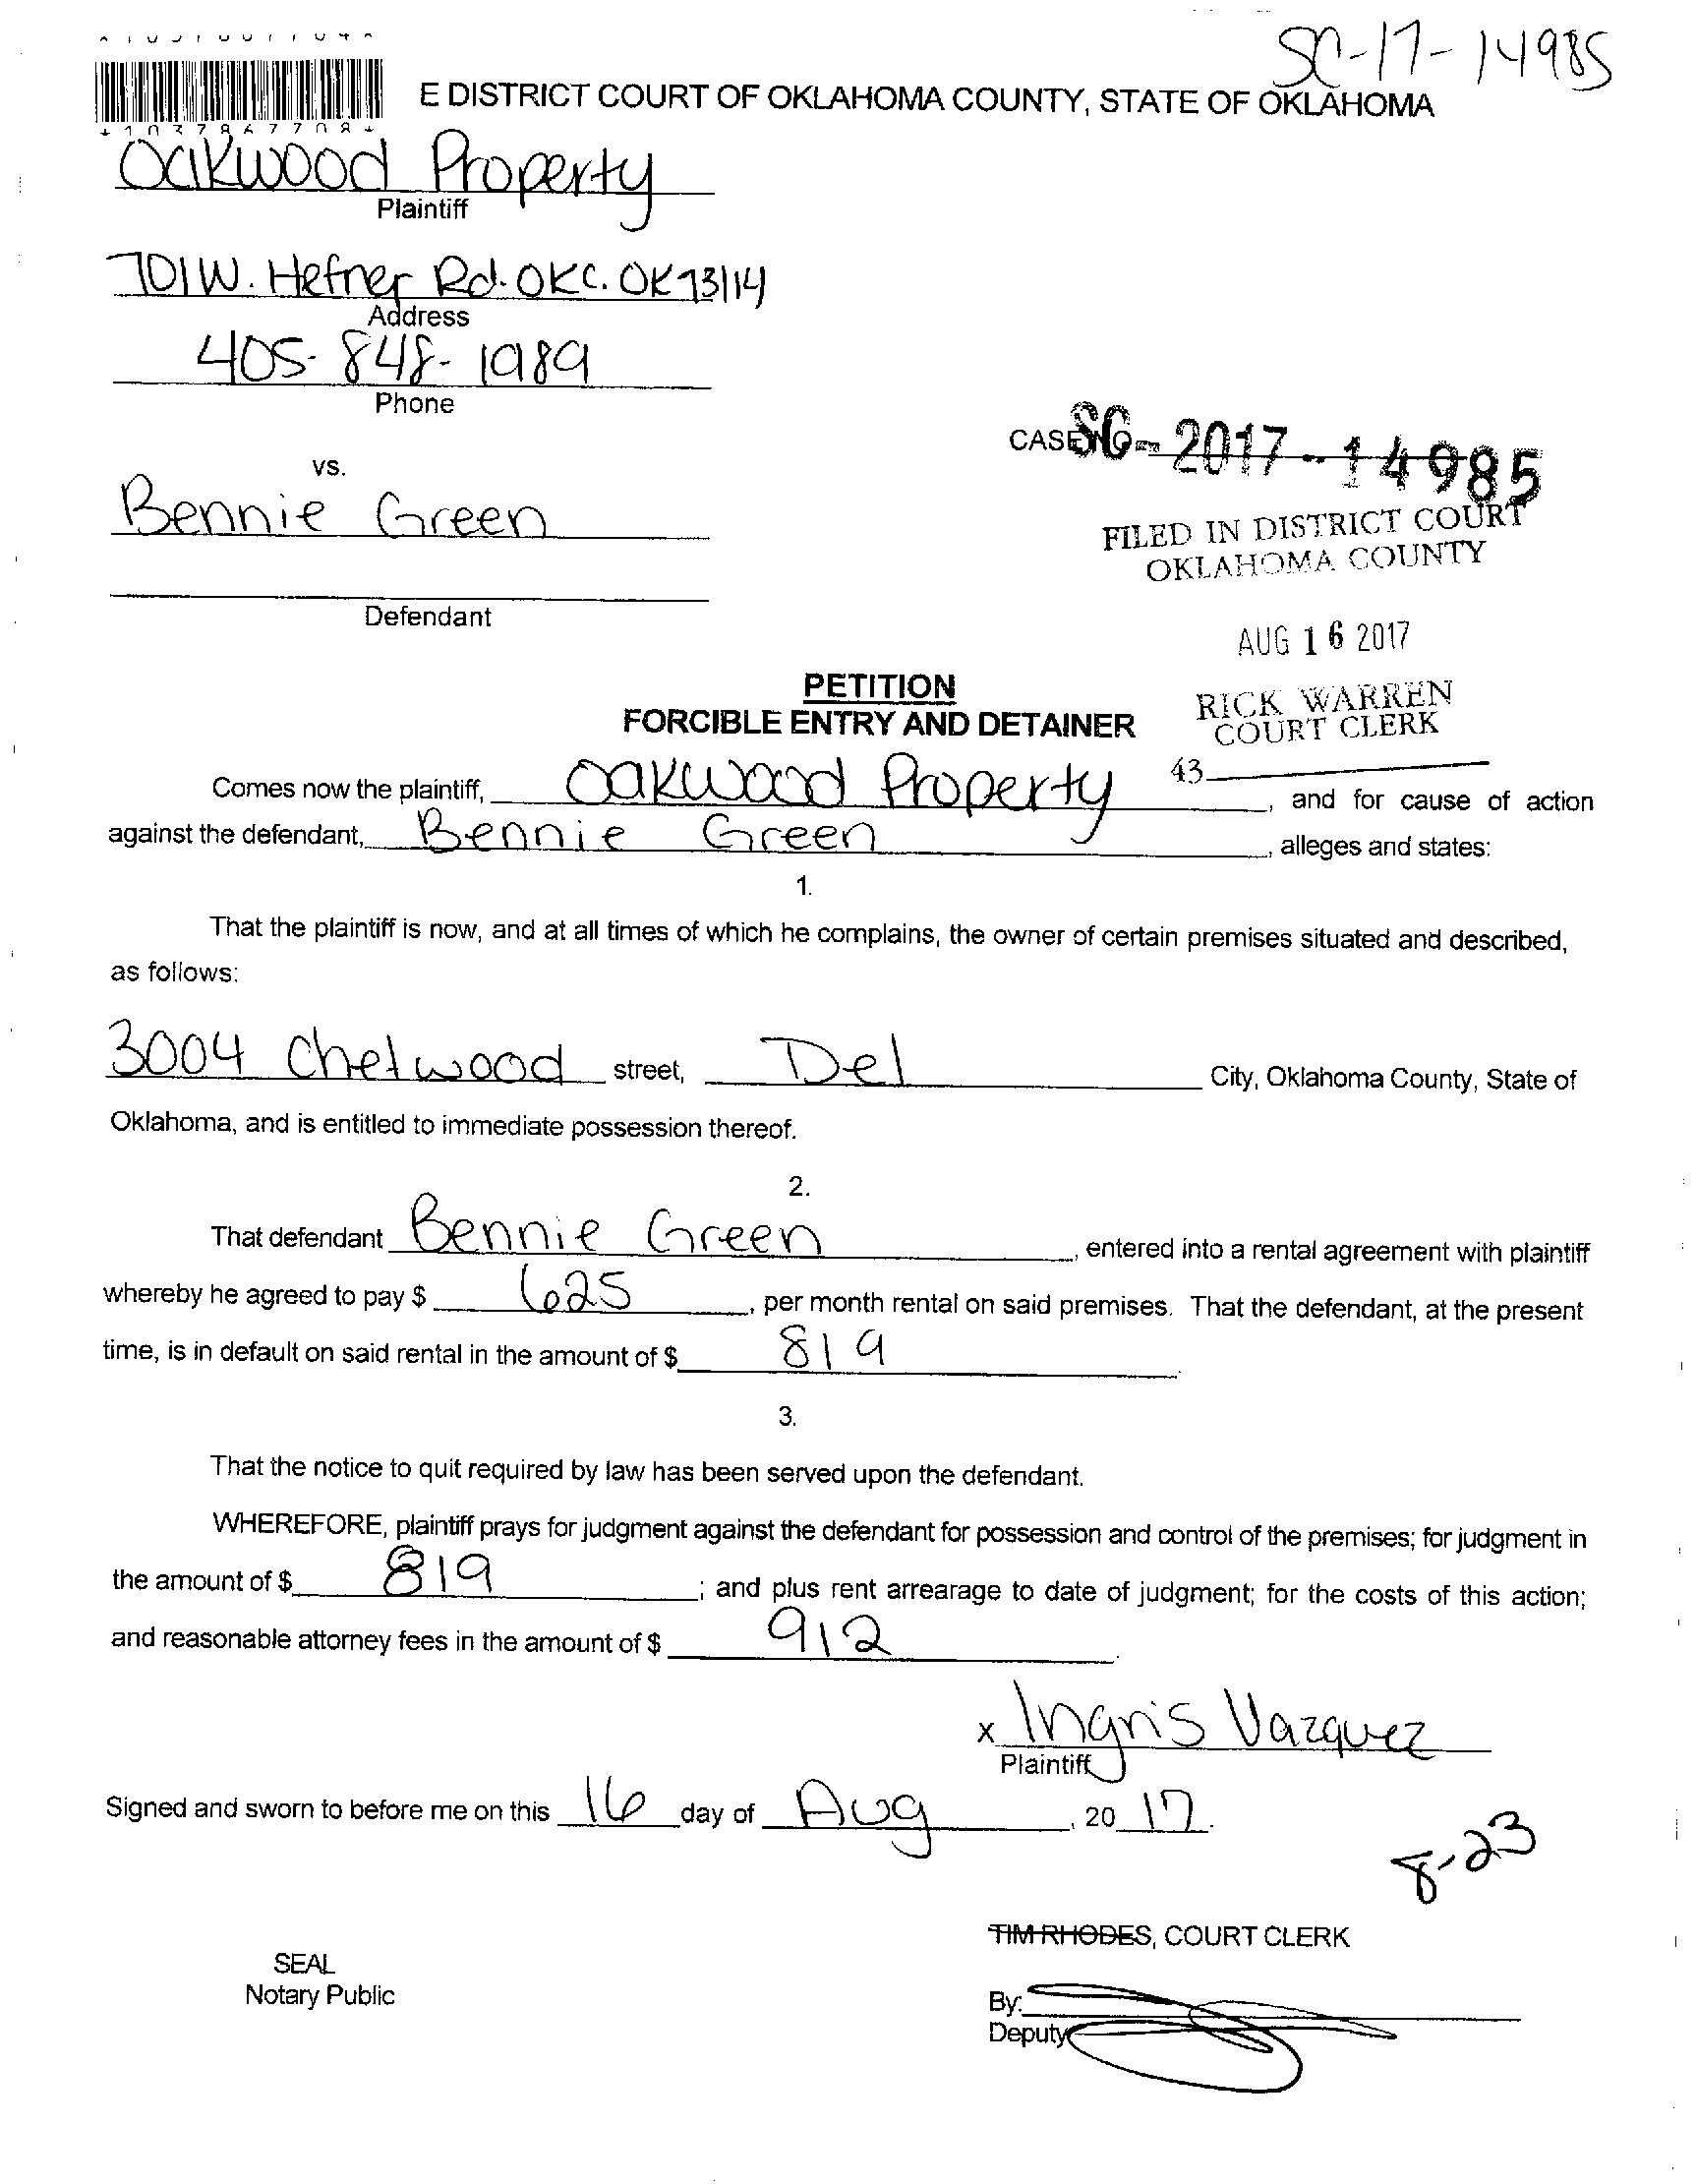 SC-17-14985
E DISTRICT COURT OF OKLAHOMA COUNTY, STATE OF OKLAHOMA
Oakwood Property
Plaintiff
701 W. Hefner Rd. OKC. OK 73114
Address
405-848-1989
Phone
CASE NO. SC-2017-14985
vs.
Bennie Green
FILED IN DISTRICT COURT
OKLAHOMA COUNTY
Defendant
AUG 16 2017
PETITION
FORCIBLE ENTRY AND DETAINER
RICK WARREN
COURT CLERK
43
Comes now the plaintiff, Oakwood Property, and for cause of action
against the defendant, Bennie Green, alleges and states:
1.
That the plaintiff is now, and at all times of which he complains, the owner of certain premises situated and described,
as follows:
3004 Chetwood street, Del City, Oklahoma County, State of
Oklahoma, and is entitled to immediate possession thereof.
2.
That defendant Bennie Green, entered into a rental agreement with plaintiff
whereby he agreed to pay $ 625, per month rental on said premises. That the defendant, at the present
time, is in default on said rental in the amount of $ 819.
3.
That the notice to quit required by law has been served upon the defendant.
WHEREFORE, plaintiff prays for judgment against the defendant for possession and control of the premises; for judgment in
the amount of $ 819; and plus rent arrearage to date of judgment; for the costs of this action;
and reasonable attorney fees in the amount of $ 912.
x Ingris Vazquez
Plaintiff
Signed and sworn to before me on this 16 day of Aug, 20 17.
8-23
TIM RHODES, COURT CLERK
SEAL
Notary Public
By:
Deputy